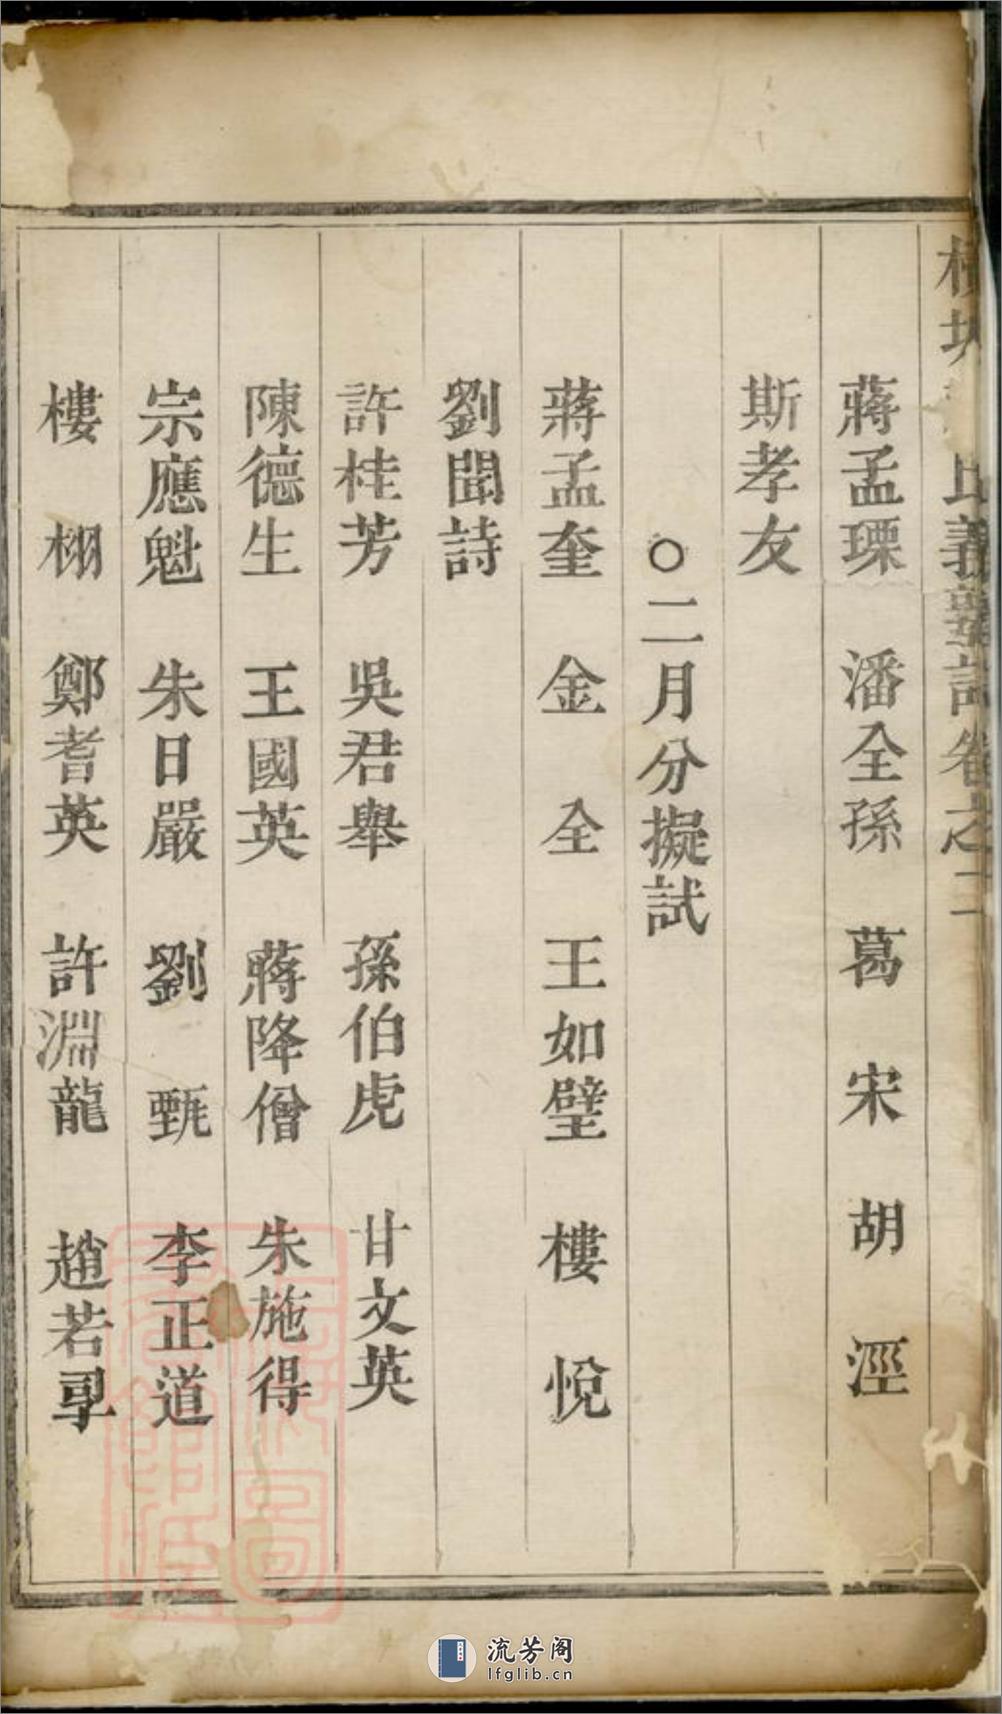 橫塘 氏義塾詩卷之二
蔣孟瑮 潘全孫 葛宋 胡涇
斯孝友
○二月分擬試
蔣孟奎 金全 王如璧 樓悅
劉聞詩
許桂芳 吳君舉 孫伯虎 甘文英
陳德生 王國英 蔣降僧 朱施得
宗應魁 朱日嚴 劉甄 李正道
樓栩 鄭耆英 許淵龍 趙若
流芳阁
lfglib.cn